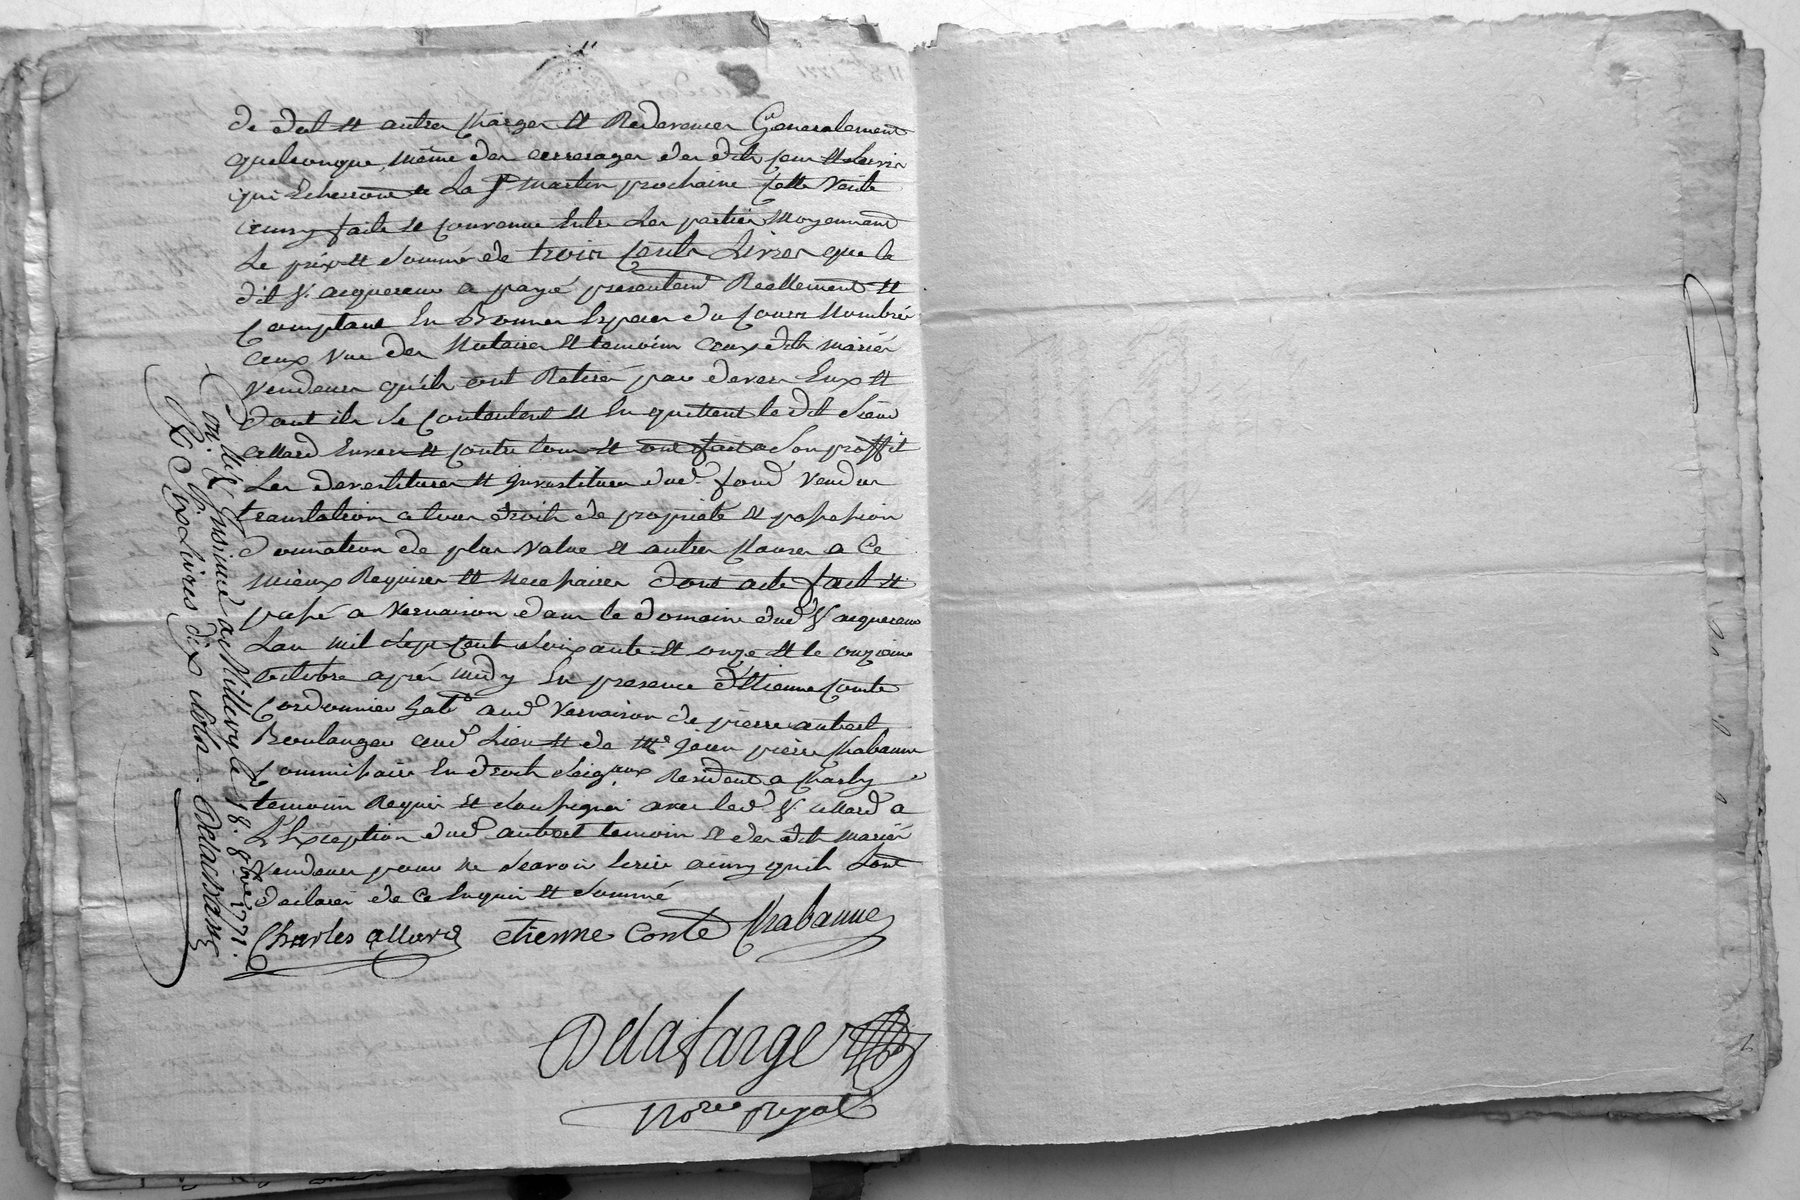 de dot et autres charges et Redevances Generalement
quelconque, même des arrerages des dits cens et servis
qui Echerront a La St martin prochaine cette vente
ainsy faite et convenue Entre Les parties moyennant
Le prix et somme de trois Cents Livres que le
dit Sr. acquereur a payé presentemt Reellement et
comptant En Bonnes Especes du Cours Nombrée
aux vue des Notaires et temoins auxdits mariés
vendeurs qu'ils ont Retiré par devers Eux et
dont ils se contentent et En quittent le dit sieur
allard Envers et contre tous et ont fait a son proffit
Les devestitures et Investitures dud. fond vendus
translation a tous droits de propriété et possession
donnation de plus value et autres clauses a Ce
mieux Requises et necessaires dont acte fait et
passé a vernaison dans le domaine dud Sr acquereur
L'an mil sept cent soixante et onze et le onzieme
octobre aprés midy En presence d'Etienne Conte
cordonnier habt. aud vernaison de pierre aubert
Boulanger aud Lieu et de Me Jean pierre Chabanne
Commissaire En droits seigaux Resident a Charly
temoins Requis et soussignés avec led Sr. allard a
L'Exception dud aubert temoin et des dits mariés
vendeurs pour ne sçavoir écrire ainsy qu'ils L'ont
declarés de Ce Enquis et sommé
Charles allard etienne conte Chabanne
Delafarge
Nore Royal
Con.lé & Insinué a Millery le 18. 8bre 1771.
R Six Livres dix sols. Delassasne